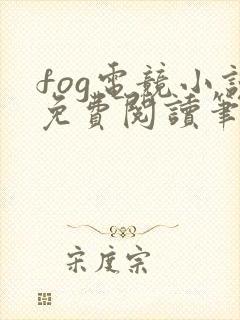 fog電競小說
免費閱讀筆
宋度宗